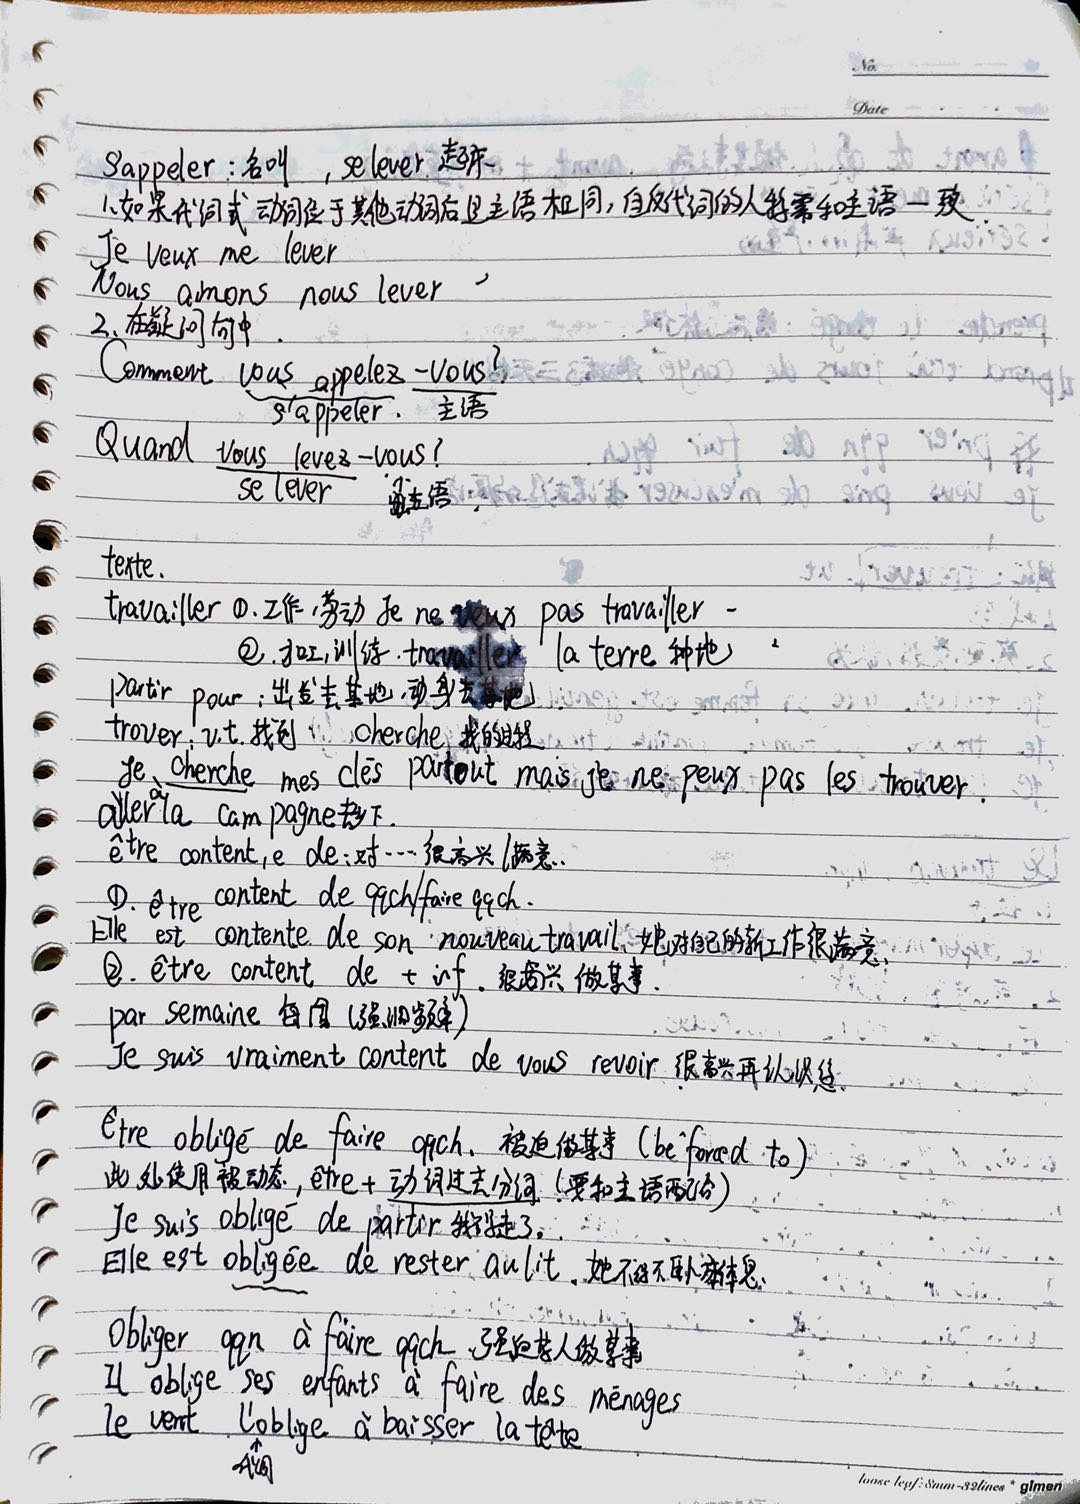 No.
Date
S'appeler : 名叫 , se lever 起床
1.如果代词式动词位于其他动词后且主语相同,自反代词的人称需和主语一致
Je veux me lever
Nous aimons nous lever
2、在疑问句中.
Comment vous appelez -vous?
s'appeler. 主语
Quand vous levez -vous?
se lever 主语
texte.
travailler ①.工作,劳动 Je ne veux pas travailler
②.加工,训练. travailler la terre 种地
partir pour : 出发去某地,动身去某地
trover v.t. 找到 cherche 找的过程
Je cherche mes clés partout mais je ne peux pas les trouver.
aller à la campagne 去乡下.
être content,e de : 对…很高兴/满意.
①. être content de qqch/faire qqch.
Elle est contente de son nouveau travail、她对自己的新工作很满意.
②. être content de + inf. 很高兴做某事.
par semaine 每周 (强调频率)
Je suis vraiment content de vous revoir 很高兴再认识您.
Être obligé de faire qqch. 被迫做某事 (be forced to)
此处使用被动态, être + 动词过去分词 (要和主语配合)
Je suis obligé de partir 我得走了.
Elle est obligée de rester au lit. 她不得不卧床休息.
Obliger qqn à faire qqch 强迫某人做某事
Il oblige ses enfants à faire des ménages
le vent l'oblige à baisser la tête
loose leaf: 8mm-32lines * glmen